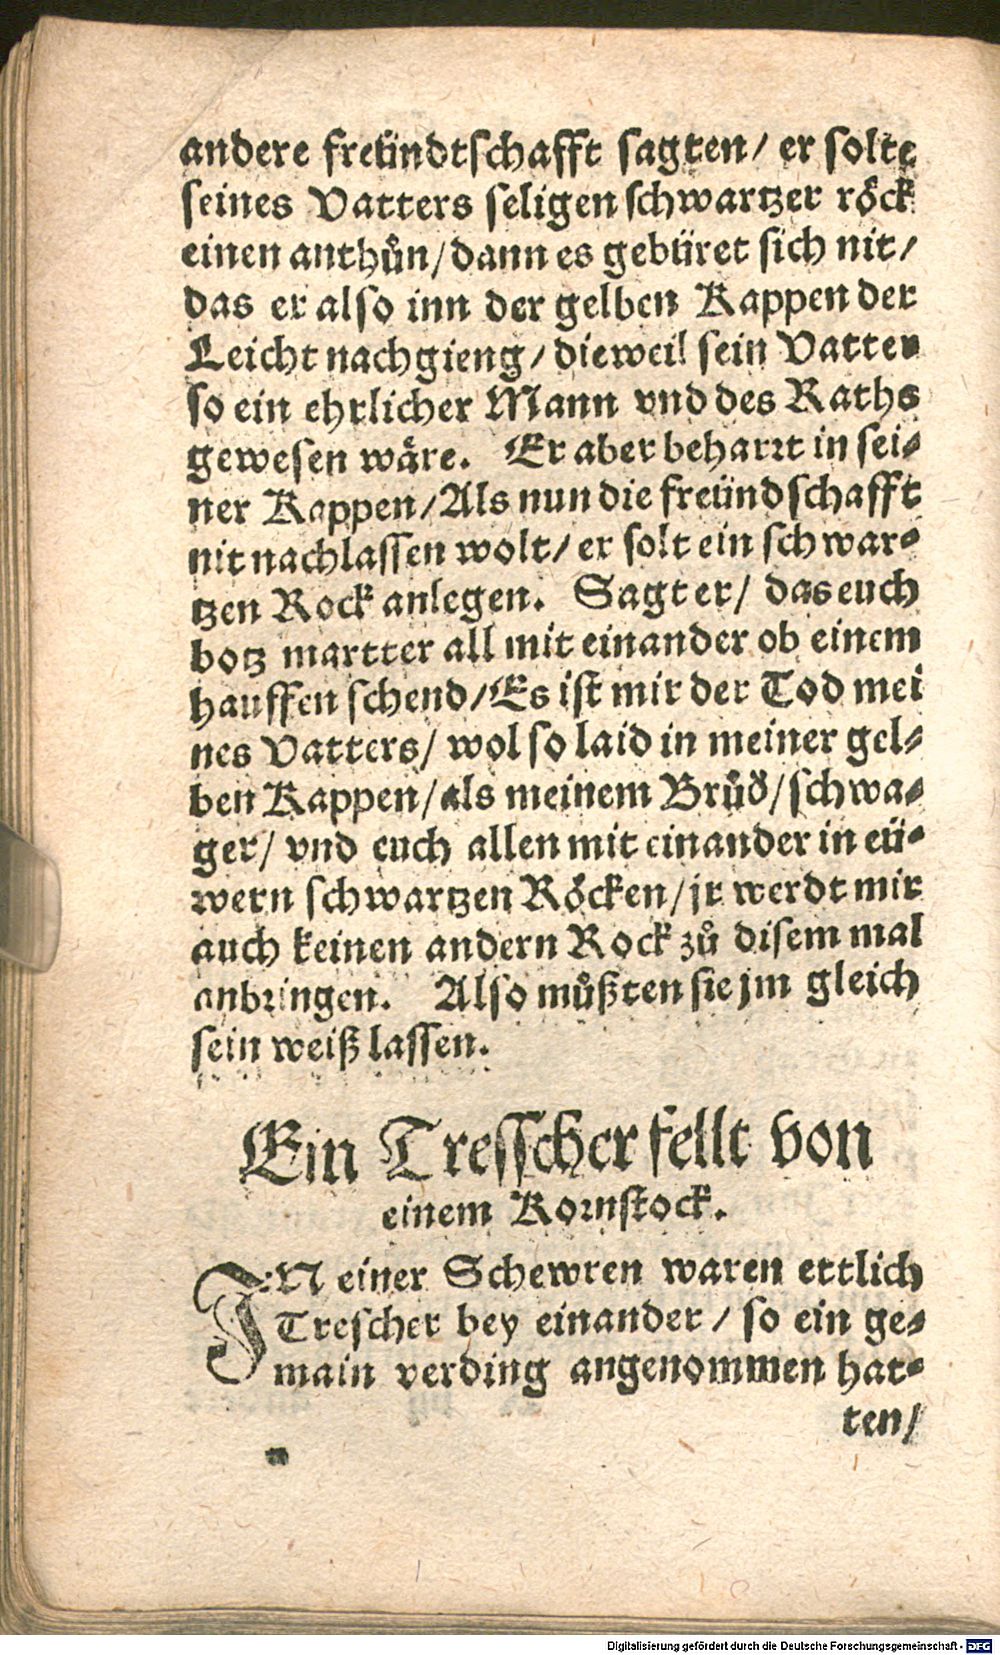 andere freündtschafft sagten/ er solte
seines Vatters seligen schwartzer röck
einen anthůn/ dann es gebüret sich nit/
das er also inn der gelben Kappen der
Leicht nachgieng/ dieweil sein Vatter
so ein ehrlicher Mann vnd des Raths
gewesen wäre. Er aber beharrt in sei-
ner Kappen/ Als nun die freündschafft
nit nachlassen wolt/ er solt ein schwar-
tzen Rock anlegen. Sagt er/ das euch
botz martter all mit einander ob einem
hauffen schend/ Es ist mir der Tod mei
nes Vatters/ wol so laid in meiner gel-
ben Kappen/ als meinem Brůd/ schwa-
ger/ vnd euch allen mit einander in eü-
wern schwartzen Röcken/ jr werdt mir
auch keinen andern Rock zů disem mal
anbringen. Also můßten sie jm gleich
sein weiß lassen.
Ein Tresscher fellt von
einem Kornstock.
IN einer Schewren waren ettlich
Trescher bey einander/ so ein ge-
main verding angenommen hat-
ten/
Digitalisierung gefördert durch die Deutsche Forschungsgemeinschaft - DFG